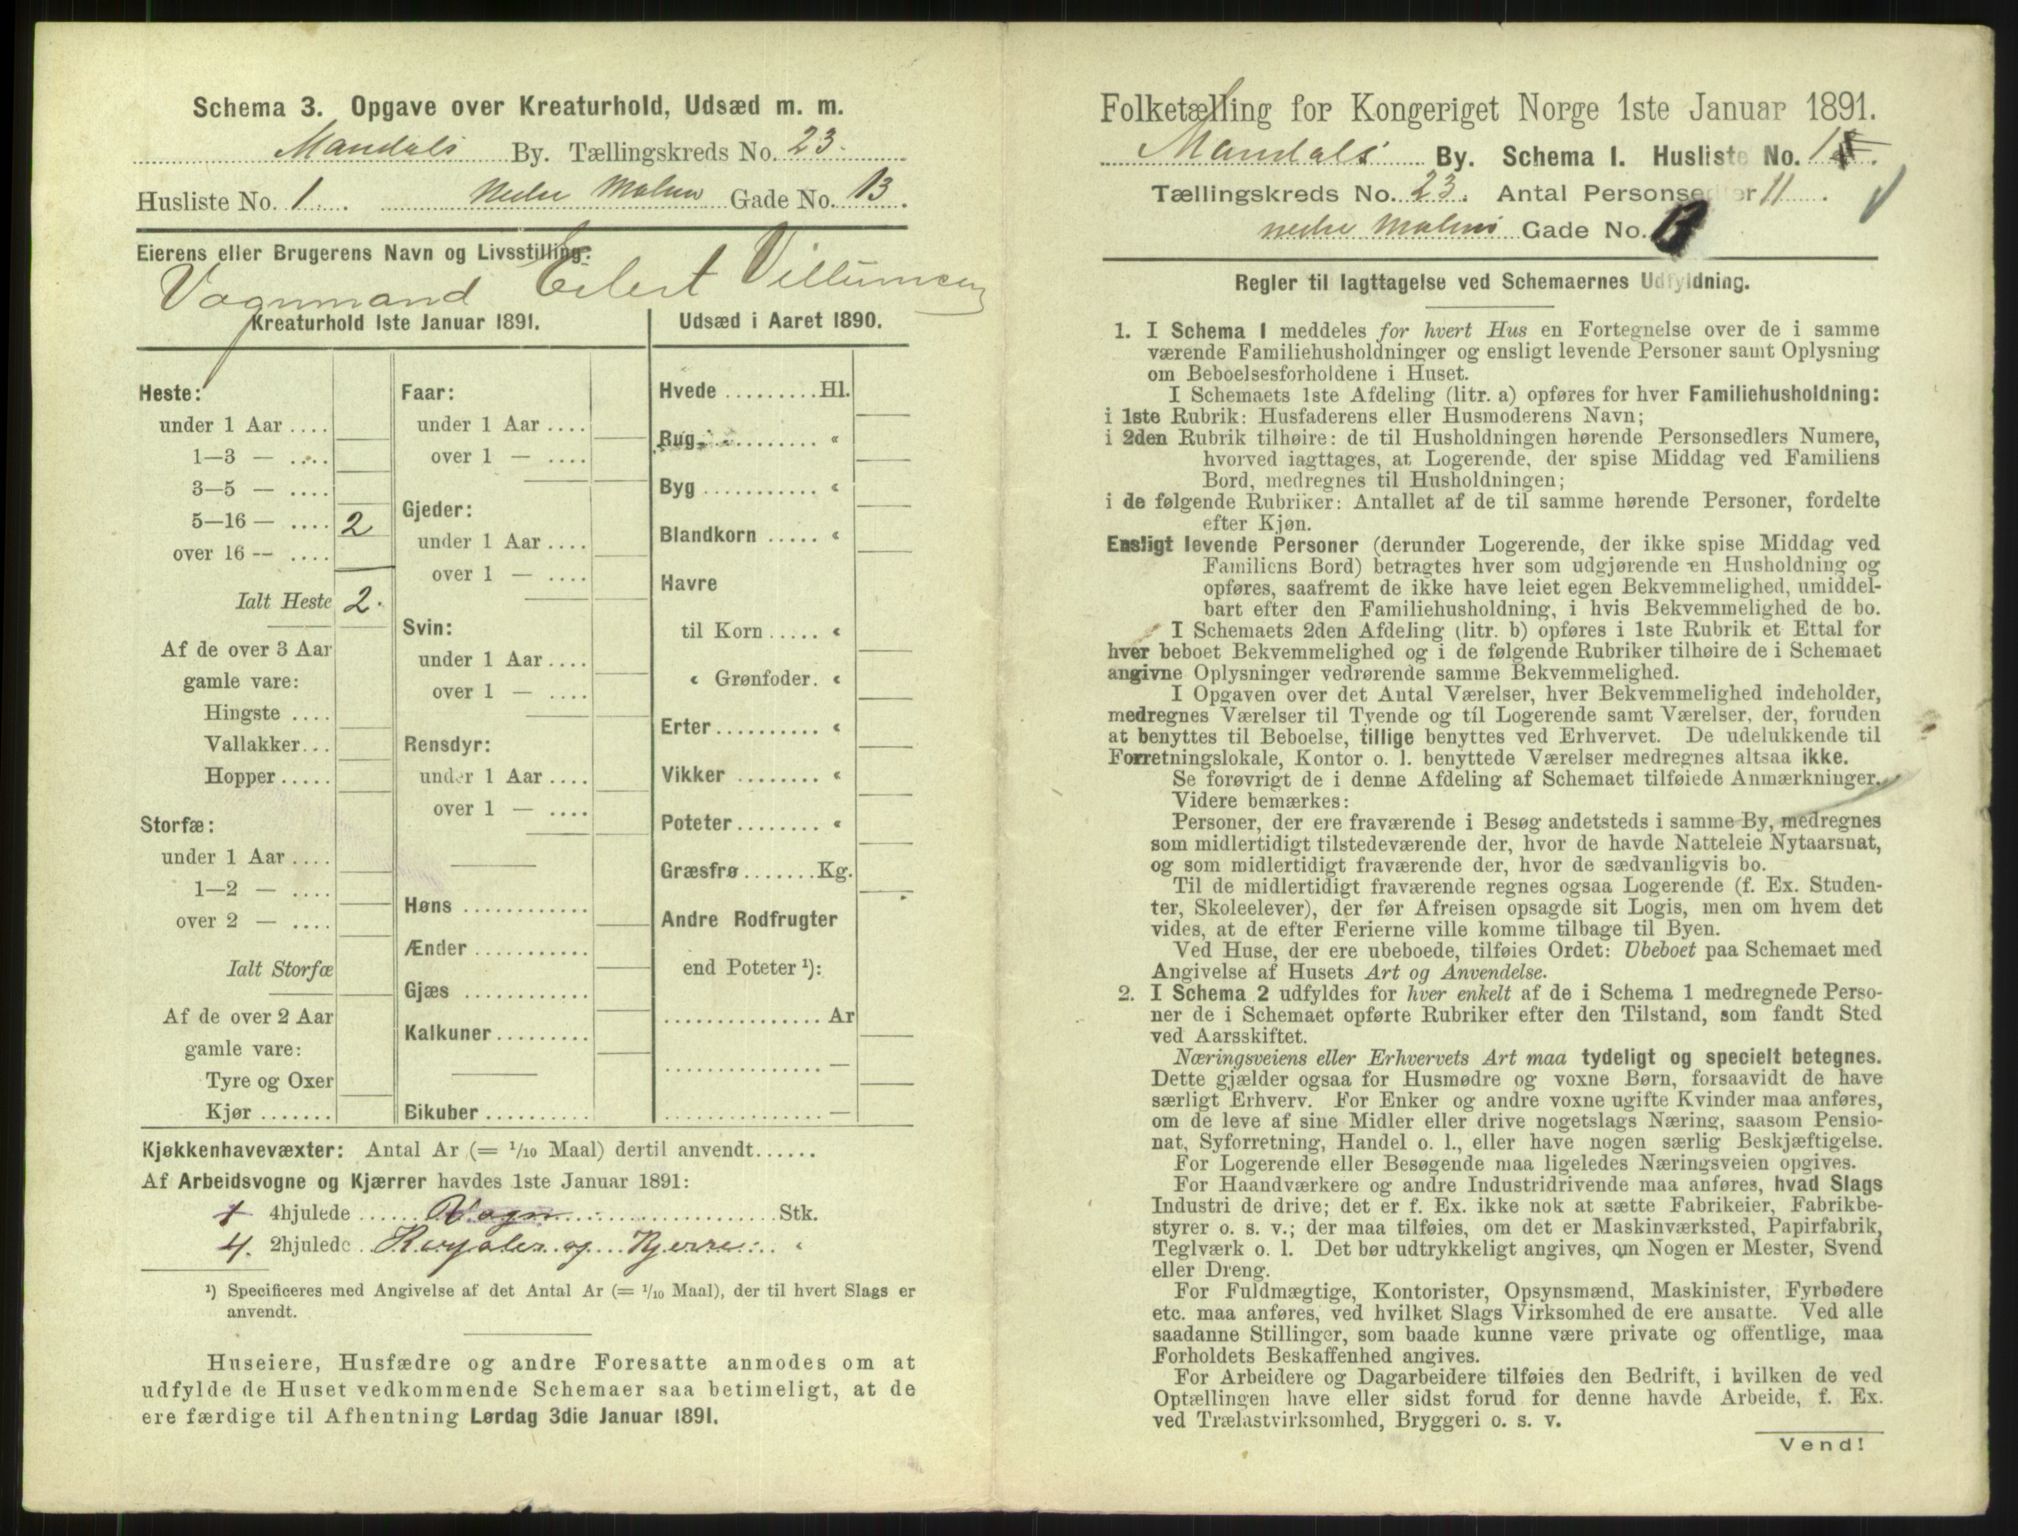 Schema 3. Opgave over Kreaturhold, Udsæd m. m.
Mandals By. Tællingskreds No. 23.
Husliste No. 1. Nedre Malmø Gade No. 13.
Eierens eller Brugerens Navn og Livsstilling:
Vognmand Eilert Villumsen
Kreaturhold 1ste Januar 1891.
Heste:
under 1 Aar ....
1—3 — ....
3—5 — ....
5—16 — .... 2
over 16 — ....
Ialt Heste 2.
Af de over 3 Aar
gamle vare:
Hingste ....
Vallakker...
Hopper.....
Storfæ:
under 1 Aar ....
1—2 — ....
over 2 — ....
Ialt Storfæ
Af de over 2 Aar
gamle vare:
Tyre og Oxer
Kjør .......
Faar:
under 1 Aar ....
over 1 — ....
Gjeder:
under 1 Aar ....
over 1 — ....
Svin:
under 1 Aar ....
over 1 — ....
Rensdyr:
under 1 Aar ....
over 1 — ....
Høns ............
Ænder ...........
Gjæs ............
Kalkuner.........
Bikuber..........
Udsæd i Aaret 1890.
Hvede .........Hl.
Rug........... «
Byg........... «
Blandkorn ..... «
Havre
til Korn ..... «
« Grønfoder. «
Erter.......... «
Vikker ........ «
Poteter........ «
Græsfrø.......Kg.
Andre Rodfrugter
end Poteter ¹):
............... Ar
............... —
............... —
Kjøkkenhavevæxter: Antal Ar (= 1/10 Maal) dertil anvendt......
Af Arbeidsvogne og Kjærrer havdes 1ste Januar 1891:
1 4hjulede ...... Vogn ............ Stk.
4. 2hjulede og Kjerre: «
¹) Specificeres med Angivelse af det Antal Ar (= 1/10 Maal), der til hvert Slags er
anvendt.
Huseiere, Husfædre og andre Foresatte anmodes om at
udfylde de Huset vedkommende Schemaer saa betimeligt, at de
ere færdige til Afhentning Lørdag 3die Januar 1891.
Folketælling for Kongeriget Norge 1ste Januar 1891.
Mandals By. Schema I. Husliste No. 1
Tællingskreds No. 23. Antal Personsedler 11.
nedre Malmø Gade No.
Regler til Iagttagelse ved Schemaernes Udfyldning.
1. I Schema 1 meddeles for hvert Hus en Fortegnelse over de i samme
værende Familiehusholdninger og ensligt levende Personer samt Oplysning
om Beboelsesforholdene i Huset.
I Schemaets 1ste Afdeling (litr. a) opføres for hver Familiehusholdning:
i 1ste Rubrik: Husfaderens eller Husmoderens Navn;
i 2den Rubrik tilhøire: de til Husholdningen hørende Personsedlers Numere,
hvorved iagttages, at Logerende, der spise Middag ved Familiens
Bord, medregnes til Husholdningen;
i de følgende Rubriker: Antallet af de til samme hørende Personer, fordelte
efter Kjøn.
Ensligt levende Personer (derunder Logerende, der ikke spise Middag ved
Familiens Bord) betragtes hver som udgjørende en Husholdning og
opføres, saafremt de ikke have leiet egen Bekvemmelighed, umiddel-
bart efter den Familiehusholdning, i hvis Bekvemmelighed de bo.
I Schemaets 2den Afdeling (litr. b) opføres i 1ste Rubrik et Ettal for
hver beboet Bekvemmelighed og i de følgende Rubriker tilhøire de i Schemaet
angivne Oplysninger vedrørende samme Bekvemmelighed.
I Opgaven over det Antal Værelser, hver Bekvemmelighed indeholder,
medregnes Værelser til Tyende og til Logerende samt Værelser, der, foruden
at benyttes til Beboelse, tillige benyttes ved Erhvervet. De udelukkende til
Forretningslokale, Kontor o. l. benyttede Værelser medregnes altsaa ikke.
Se forøvrigt de i denne Afdeling af Schemaet tilføiede Anmærkninger.
Videre bemærkes:
Personer, der ere fraværende i Besøg andetsteds i samme By, medregnes
som midlertidigt tilstedeværende der, hvor de havde Natteleie Nytaarsnat,
og som midlertidigt fraværende der, hvor de sædvanligvis bo.
Til de midlertidigt fraværende regnes ogsaa Logerende (f. Ex. Studen-
ter, Skoleelever), der før Afreisen opsagde sit Logis, men om hvem det
vides, at de efter Ferierne ville komme tilbage til Byen.
Ved Huse, der ere ubeboede, tilføies Ordet: Ubeboet paa Schemaet med
Angivelse af Husets Art og Anvendelse.
2. I Schema 2 udfyldes for hver enkelt af de i Schema 1 medregnede Perso-
ner de i Schemaet opførte Rubriker efter den Tilstand, som fandt Sted
ved Aarsskiftet.
Næringsveiens eller Erhvervets Art maa tydeligt og specielt betegnes.
Dette gjælder ogsaa for Husmødre og voxne Børn, forsaavidt de have
særligt Erhverv. For Enker og andre voxne ugifte Kvinder maa anføres,
om de leve af sine Midler eller drive nogetslags Næring, saasom Pensio-
nat, Syforretning, Handel o. l., eller have nogen særlig Beskjæftigelse.
For Logerende eller Besøgende maa ligeledes Næringsveien opgives.
For Haandværkere og andre Industridrivende maa anføres, hvad Slags
Industri de drive; det er f. Ex. ikke nok at sætte Fabrikeier, Fabrikbe-
styrer o. s. v.; der maa tilføies, om det er Maskinværksted, Papirfabrik,
Teglværk o. l. Det bør udtrykkeligt angives, om Nogen er Mester, Svend
eller Dreng.
For Fuldmægtige, Kontorister, Opsynsmænd, Maskinister, Fyrbødere
etc. maa anføres, ved hvilket Slags Virksomhed de ere ansatte. Ved alle
saadanne Stillinger, som baade kunne være private og offentlige, maa
Forholdets Beskaffenhed angives.
For Arbeidere og Dagarbeidere tilføies den Bedrift, i hvilken de ved
Optællingen have eller sidst forud for denne havde Arbeide, f. Ex.
ved Trælastvirksomhed, Bryggeri o. s. v.
Vend!